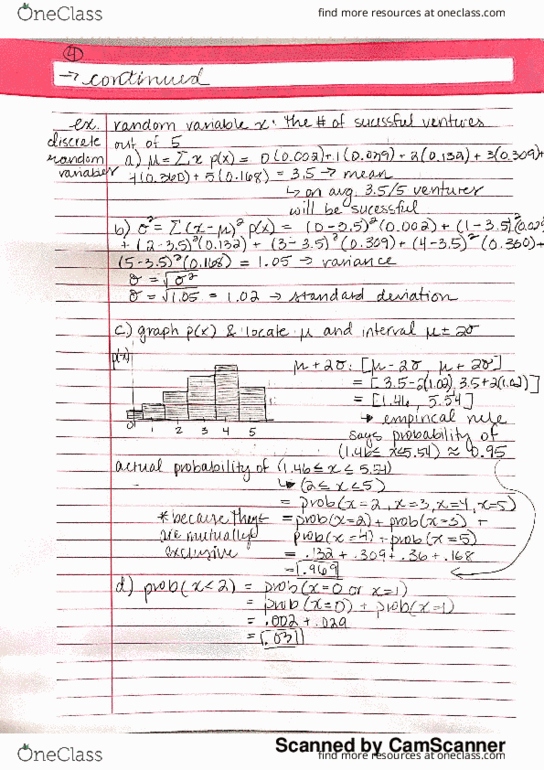 OneClass
find more resources at oneclass.com
④
→ continued
ex. random variable x: the # of sucessful ventures
discrete random variable
out of 5
a) μ = Σ x p(x) = 0(0.002)+1(0.029)+2(0.132)+3(0.309)+
4(0.360)+5(0.168) = 3.5 → mean
↳ on avg. 3.5/5 ventures
will be sucessful
b) σ² = Σ(x-μ)² p(x) = (0-3.5)²(0.002) + (1-3.5)²(0.029)
+ (2-3.5)²(0.132) + (3-3.5)²(0.309) + (4-3.5)²(0.360)+
(5-3.5)²(0.168) = 1.05 → variance
σ = √σ²
σ = √1.05 = 1.02 → standard deviation
c) graph p(x) & locate μ and interval μ ± 2σ
p(x)
0 1 2 3 4 5
μ ± 2σ: [μ-2σ, μ+2σ]
= [3.5-2(1.02), 3.5+2(1.02)]
= [1.46, 5.54]
→ empirical rule
says probability of
(1.46≤ x≤5.54) ≈ 0.95
actual probability of (1.46 ≤ x ≤ 5.54)
↳ (2 ≤ x ≤ 5)
= prob(x=2, x=3, x=4, x=5)
*because they are mutually exclusive
= prob(x=2) + prob(x=3) +
prob(x=4) + prob(x=5)
= .132 + .309 + .36 + .168
= .969
d) prob(x<2) = prob(x=0 or x=1)
= prob(x=0) + prob(x=1)
= .002 + .029
= .031
Scanned by CamScanner
OneClass
find more resources at oneclass.com